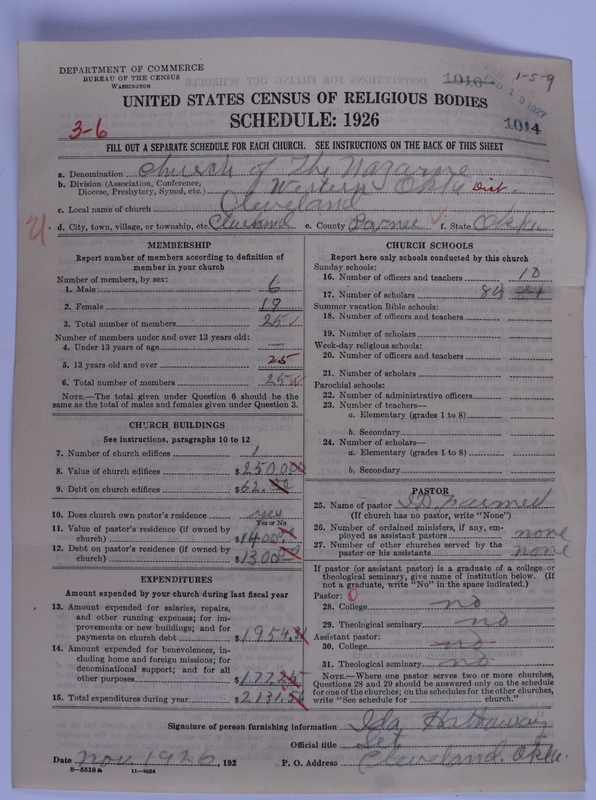 DEPARTMENT OF COMMERCE
BUREAU OF THE CENSUS
WASHINGTON
1016
1-5-9
1014
UNITED STATES CENSUS OF RELIGIOUS BODIES
SCHEDULE: 1926
3-6
FILL OUT A SEPARATE SCHEDULE FOR EACH CHURCH. SEE INSTRUCTIONS ON THE BACK OF THIS SHEET
a. Denomination Church of The Nazarene
b. Division (Association, Conference, Diocese, Presbytery, Synod, etc.) Western Okla Dist.
c. Local name of church Cleveland
d. City, town, village, or township, etc. Cleveland e. County Pawnee f. State Okla
MEMBERSHIP
Report number of members according to definition of
member in your church
Number of members, by sex:
1. Male 6
2. Female 19
3. Total number of members 25
Number of members under and over 13 years old:
4. Under 13 years of age —
5. 13 years old and over 25
6. Total number of members 25
NOTE.—The total given under Question 6 should be the
same as the total of males and females given under Question 3.
CHURCH BUILDINGS
See instructions, paragraphs 10 to 12
7. Number of church edifices 1
8. Value of church edifices $2500.00
9. Debt on church edifices $62.00
10. Does church own pastor's residence yes
Yes or No
11. Value of pastor's residence (if owned by
church) $1400.
12. Debt on pastor's residence (if owned by
church) $1300
EXPENDITURES
Amount expended by your church during last fiscal year
13. Amount expended for salaries, repairs,
and other running expenses; for im-
provements or new buildings; and for
payments on church debt $1954.31
14. Amount expended for benevolences, in-
cluding home and foreign missions; for
denominational support; and for all
other purposes $177.25
15. Total expenditures during year $2131.56
CHURCH SCHOOLS
Report here only schools conducted by this church
Sunday schools:
16. Number of officers and teachers 10
17. Number of scholars 84
Summer vacation Bible schools:
18. Number of officers and teachers
19. Number of scholars
Week-day religious schools:
20. Number of officers and teachers
21. Number of scholars
Parochial schools:
22. Number of administrative officers
23. Number of teachers—
a. Elementary (grades 1 to 8)
b. Secondary
24. Number of scholars—
a. Elementary (grades 1 to 8)
b. Secondary
PASTOR
25. Name of pastor
(If church has no pastor, write "None")
26. Number of ordained ministers, if any, em-
ployed as assistant pastors none
27. Number of other churches served by the
pastor or his assistants none
If pastor (or assistant pastor) is a graduate of a college or
theological seminary, give name of institution below. (If
not a graduate, write "No" in the space indicated.)
Pastor: 0
28. College no
29. Theological seminary no
Assistant pastor:
30. College no
31. Theological seminary no
NOTE.—Where one pastor serves two or more churches,
Questions 28 and 29 should be answered only on the schedule
for one of the churches; on the schedules for the other churches,
write "See schedule for church."
Signature of person furnishing information Ida Hathaway
Official title Sct
Date Nov 1926, 192 P. O. Address Cleveland. Okla.
8—5518a 11—9054